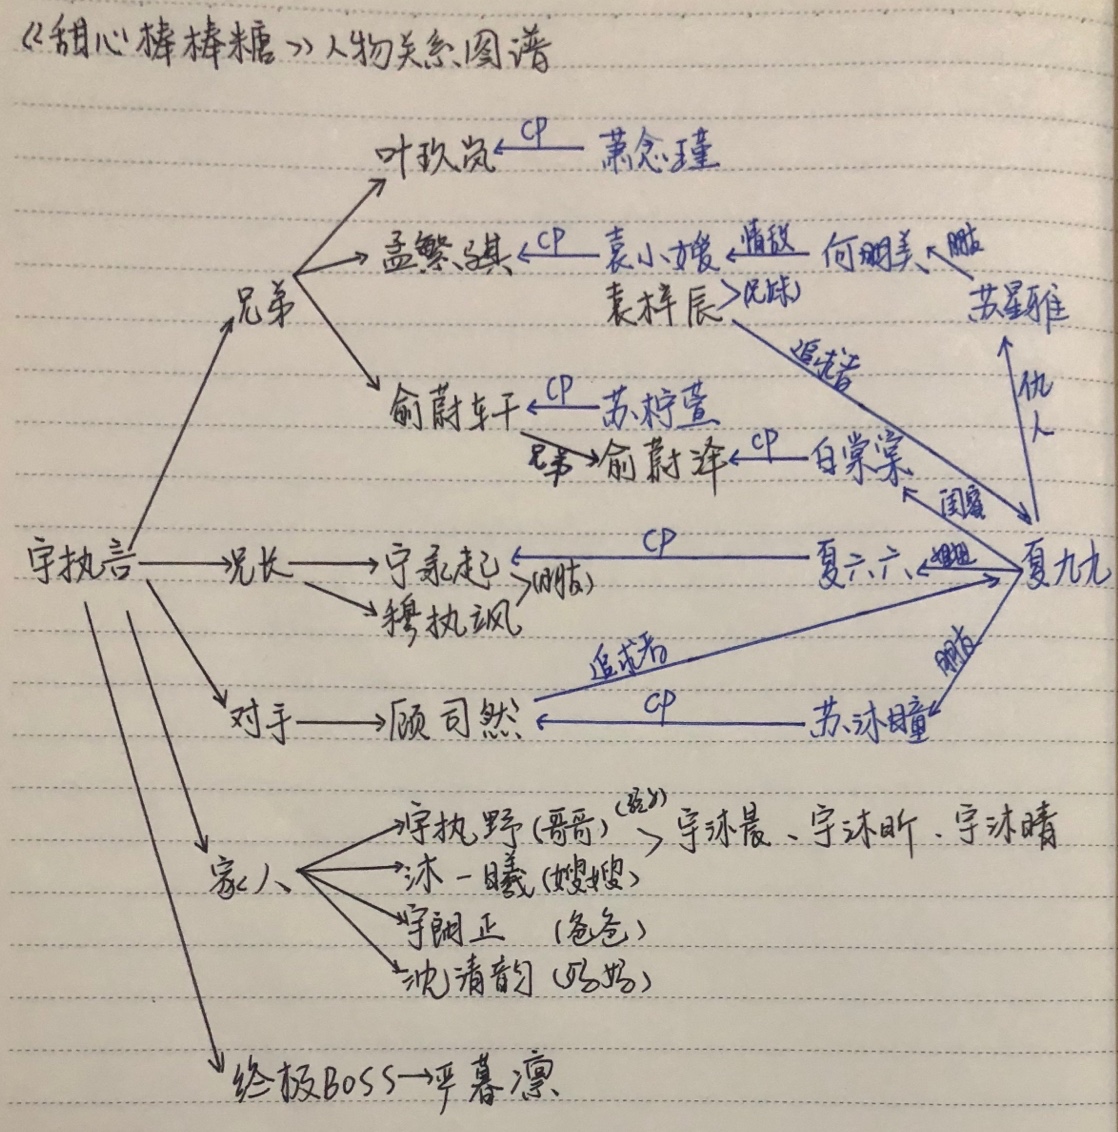 《甜心棒棒糖》人物关系图谱
叶玖岚 CP 萧念瑾
孟繁骐 CP 袁小嫒 情敌 何明美 朋友
兄弟 袁梓辰 (兄妹) 苏星雅
追求者 仇人
俞蔚车干 CP 苏柠萱
兄弟 俞蔚泽 CP 白棠棠
闺蜜
宇执言 兄长 宁承起 CP 夏六六 姐姐 夏九九
穆执飒 (朋友)
追求者 朋友
对手 顾司然 CP 苏沐瞳
宇执野(哥哥) (孩子) 宇沐晨、宇沐昕、宇沐晴
家人 沐一曦(嫂嫂)
宇朗正 (爸爸)
沈清韵(妈妈)
终极BOSS 严暮凛